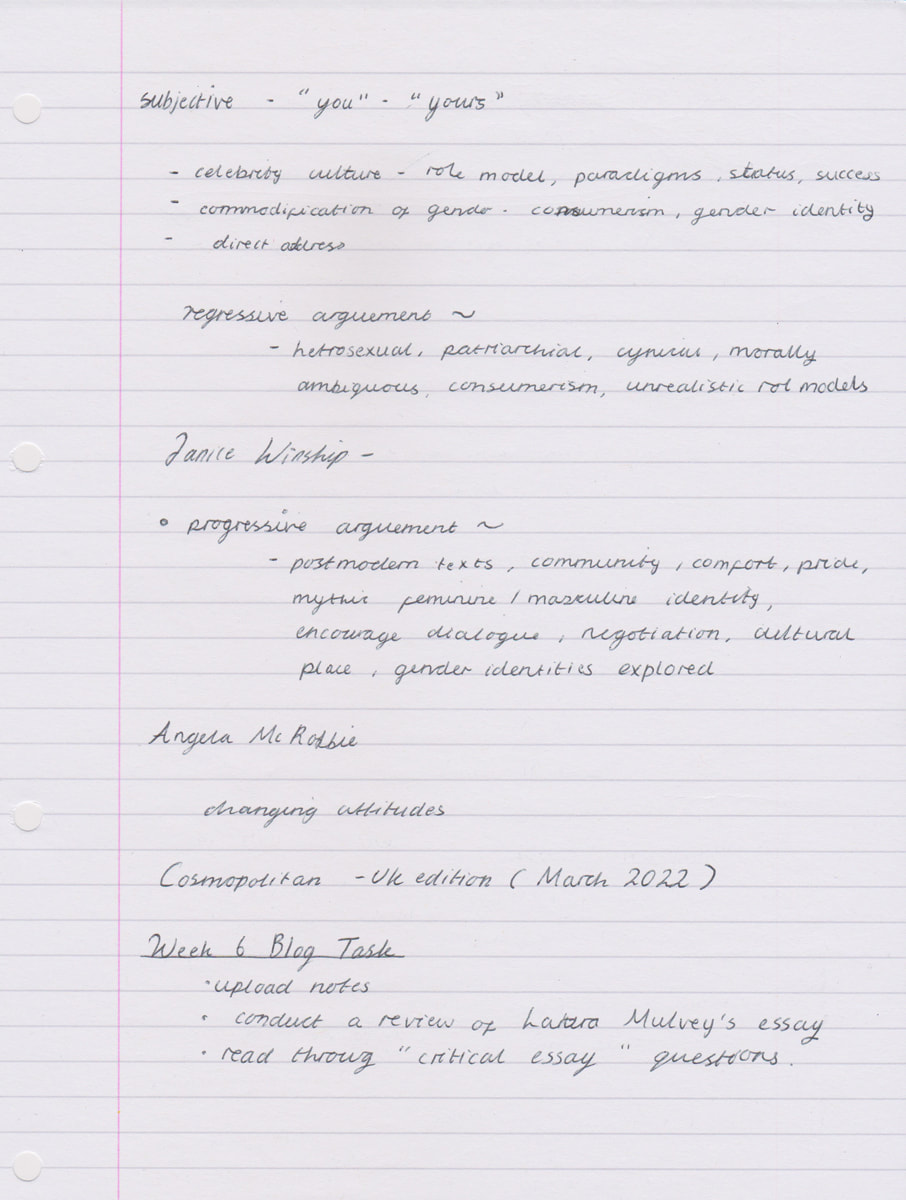 subjective - "you" - "yours"
- celebrity culture - role model, paradigms, status, success
- commodification of gender - consumerism, gender identity
- direct address
regressive arguement ~
- hetrosexual, patriarchial, cynical, morally
ambiguous, consumerism, unrealistic rol models
Janice Winship -
• progressive arguement ~
- postmodern texts, community, comfort, pride,
mythic feminine / masculine identity,
encourage dialogue, negotiation, cultural
place, gender identities explored
Angela McRobbie
changing attitudes
Cosmopolitan - UK edition (March 2022)
Week 6 Blog Task
• upload notes
• conduct a review of Mulvey's essay
• read throug "critical essay" questions.